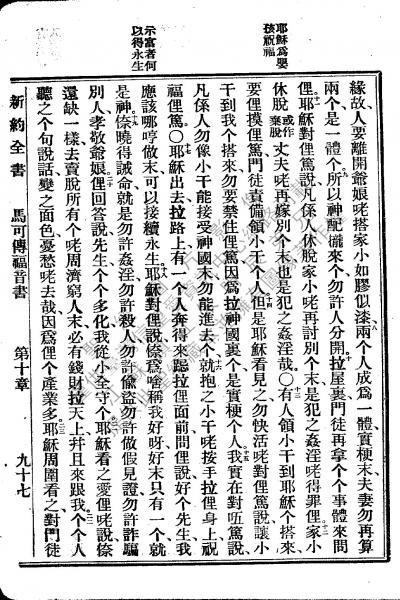 耶穌爲嬰
孩祝福
示富者何
以得永生
緣故人要離開爺娘咾搭家小如膠似漆八兩个人成爲一體實梗末夫妻勿再算
兩个是一體个九所以神配攏來个勿許人分開十拉屋裏門徒再拿个个事體來問
俚十一耶穌對俚篤說凡係人休脫家小咾再討別个末是犯之姦淫咾得罪俚家小十二
休脫或作棄脫丈夫咾再嫁別个末也是犯之姦淫哉○十三有人領小干到耶穌个搭來
要俚摸俚篤門徒責備領小干个人十四但是耶穌看見之勿快活咾對俚篤說讓小
干到我个搭來勿要禁住俚篤因爲拉神國裏个是實梗个人十五我實在對㑚篤說
凡係人勿像小干能接受神國末勿能進去个十六就抱之小干咾按手拉俚身上祝
福俚篤○十七耶穌出去拉路上有一个人奔得來跽拉俚面前問俚說好个先生我
應該哪哼做末可以接續永生十八耶穌對俚說倷爲啥稱我好呀好末只有一个就
是神十九倷曉得誡命就是勿許姦淫勿許殺人勿許偷盜勿許做假見證勿許詐騙
別人孝敬爺娘二十俚回答說先生个个多化我從小全守个二一耶穌看之愛俚咾說倷
還缺一樣去賣脫所有个咾周濟窮人末必有錢財拉天上幷且來跟我二二个个人
聽之个句說話變之面色憂愁咾去哉因爲俚个產業多二三耶穌周圍看之對門徒
新約全書 馬可傳福音書 第十章 九十七